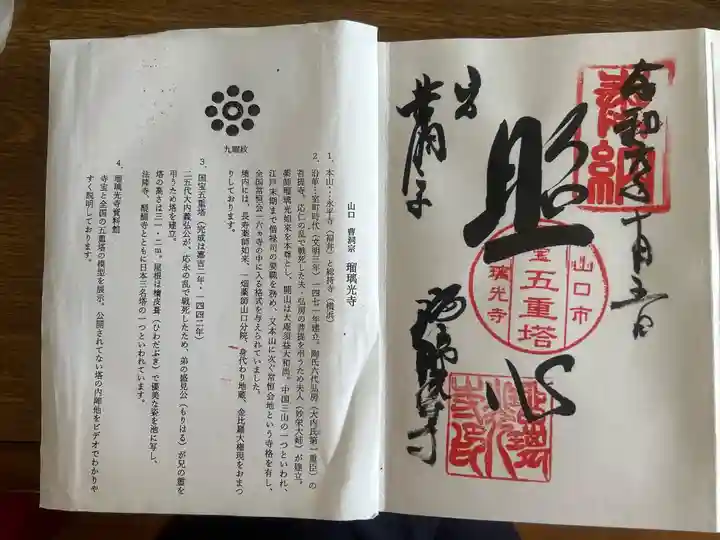 九曜紋
山口 曹洞宗 瑠璃光寺
1、本山…永平寺（福井）と総持寺（横浜）
2、沿革…室町時代（文明三年）一四七一年建立。陶氏六代弘房（大内氏第一重臣）の
菩提寺。応仁の乱で戦死した夫・弘房の菩提を弔うため夫人（妙栄大姉）が建立。
薬師瑠璃光如来を本尊とし、開山は大庵須益大和尚。中国三山の一つといわれ、
江戸末期まで僧禄司の要職を務め、又本山に次ぐ常恒会地という寺格を有し、
全国常恒会一六ヵ寺の中に入る格式を与えられていました。
境内には、長寿薬師如来、一畑薬師山口分院、身代わり地蔵、金比羅大権現をおまつ
りしております。
3、国宝五重塔（完成は嘉吉二年・一四四二年）
二五代大内義弘公が、応永の乱で戦死したため、弟の盛見公（もりはる）が兄の霊を
弔うため塔を建立。
塔の高さは三一・二m。屋根は檜皮葺（ひわだぶき）で優美な姿を池に写し、
法隆寺、醍醐寺とともに日本三名塔の一つといわれています。
4、瑠璃光寺資料館
寺宝と全国の五重塔の模型を展示、公開されてない塔の内陣他をビデオでわかりや
すく説明しております。
令和六年十月五日
奉納
照心
山口市
国宝五重塔
瑠璃光寺
瑠璃光寺